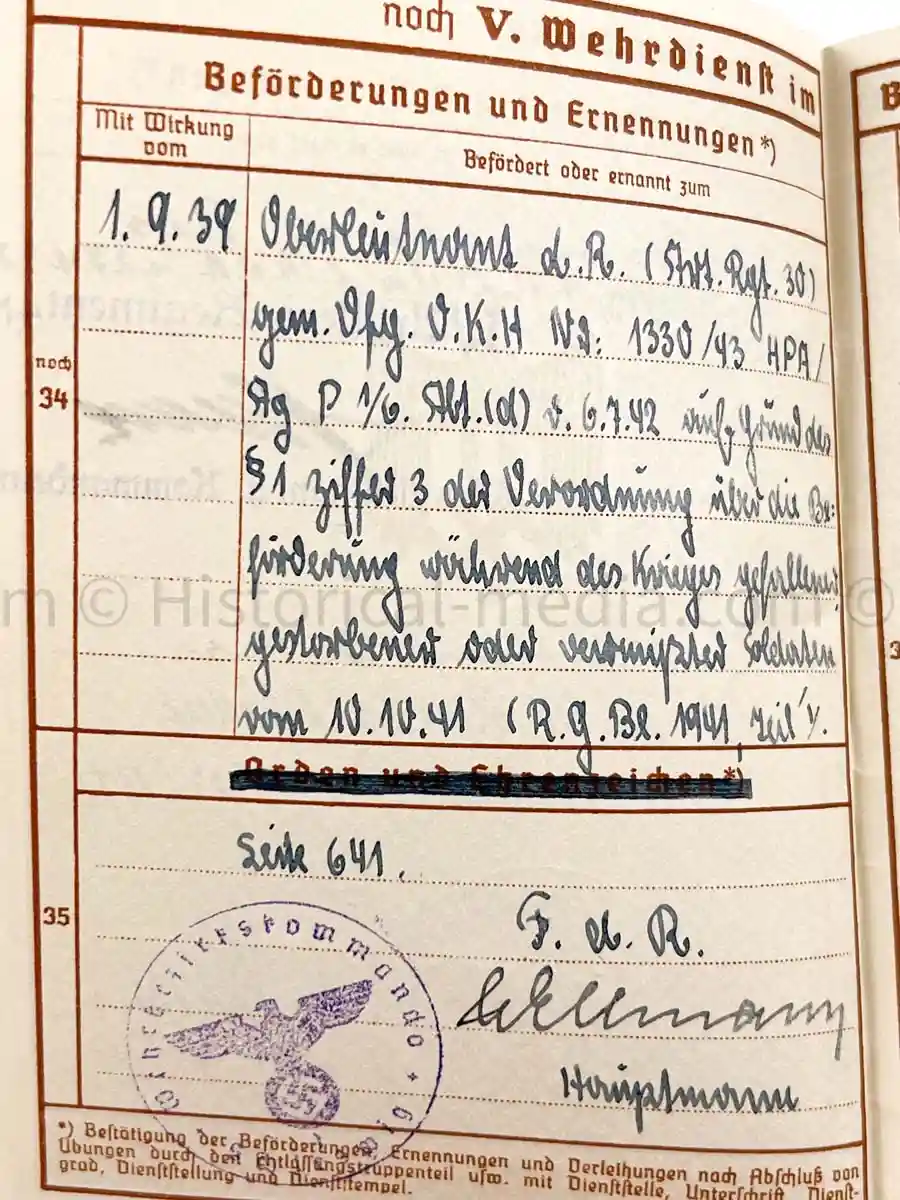 noch V. Wehrdienst im
Beförderungen und Ernennungen*)
Mit Wirkung
vom
Befördert oder ernannt zum
1.9.39 Oberleutnant d.R. (Art. Rgt. 30)
gem. Vfg. O.K.H Nr: 1330/43 HPA/
noch
34
Ag P 1/6. Abt.(d) v. 6.7.42 auf Grund des
§1 Ziffer 3 der Verordnung über die Be-
förderung während des Krieges gefallener,
gestorbener oder vermißter Soldaten
vom 10.10.41 (R.G.Bl. 1941, Teil I/.
Orden und Ehrenzeichen*)
Seite 641.
35
F. d. R.
Hauptmann
Wehrbezirkskommando
*) Bestätigung der Beförderungen, Ernennungen und Verleihungen nach Abschluß von
Übungen durch den Entlassungstruppenteil usw. mit Dienststelle, Unterschrift, Dienst-
grad, Dienststellung und Dienststempel.
© Historical-media.com ©